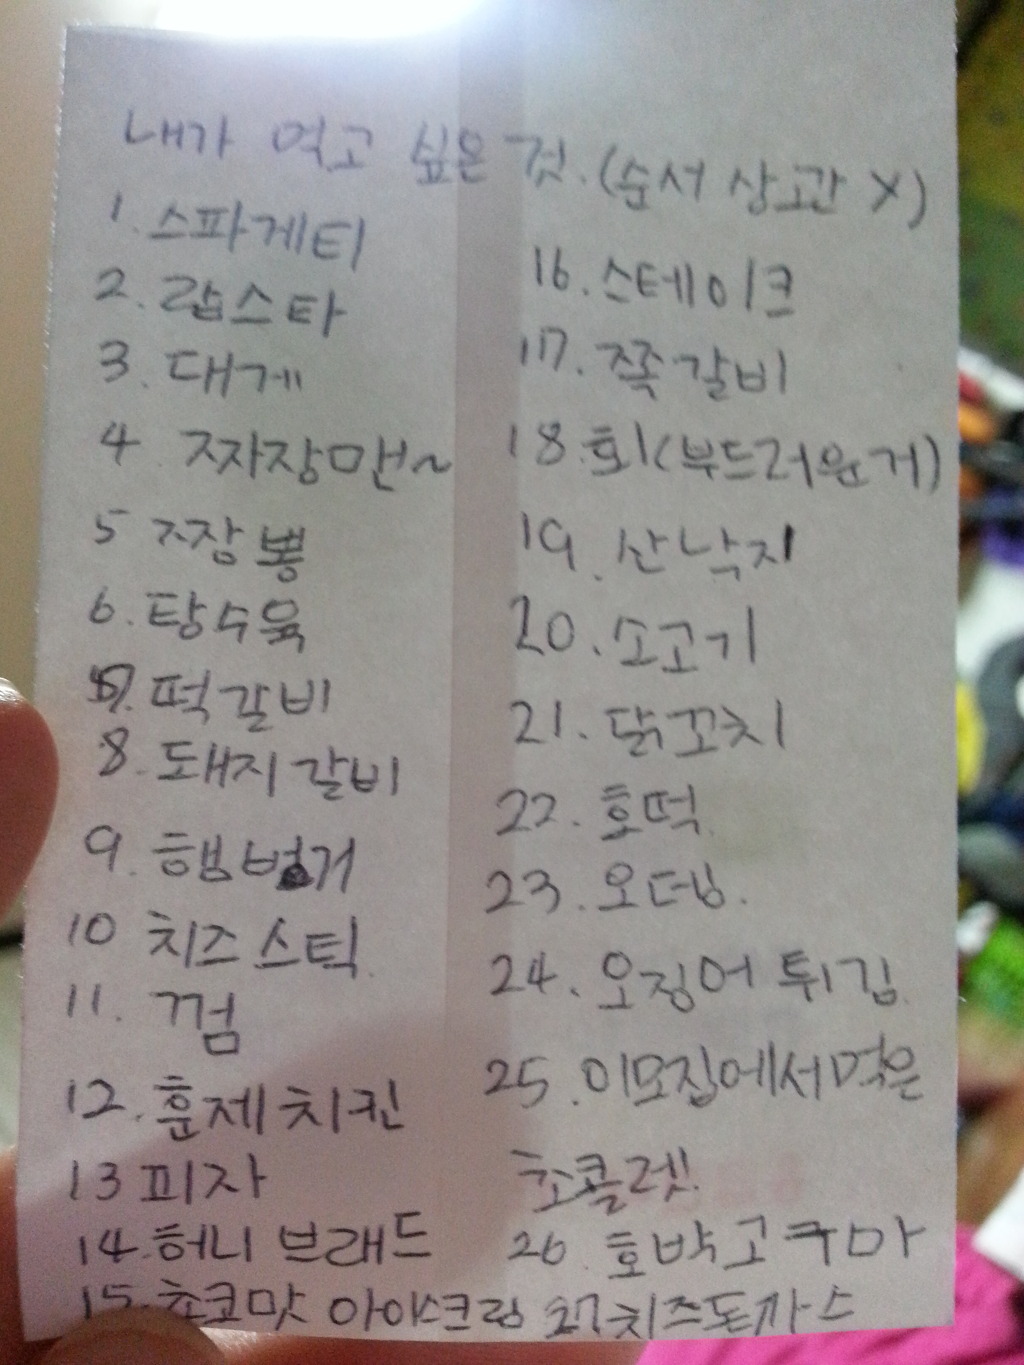 내가 먹고 싶은 것. (순서 상관 X)
1. 스파게티
2. 랍스타
3. 대게
4 짜장맨~
5 짬뽕
6. 탕수육
7. 떡갈비
8. 돼지갈비
9. 햄벅거
10 치즈스틱
11. 껌
12. 훈제치킨
13 피자
14. 허니브래드
15. 초코맛 아이스크림
16. 스테이크
17. 쪽갈비
18. 회(부드러운거)
19. 산낙지
20. 소고기
21. 닭꼬치
22. 호떡
23. 오뎅.
24. 오징어 튀김
25. 이모집에서먹은
초콜렛!
26. 호박고구마
27 치즈돈까스